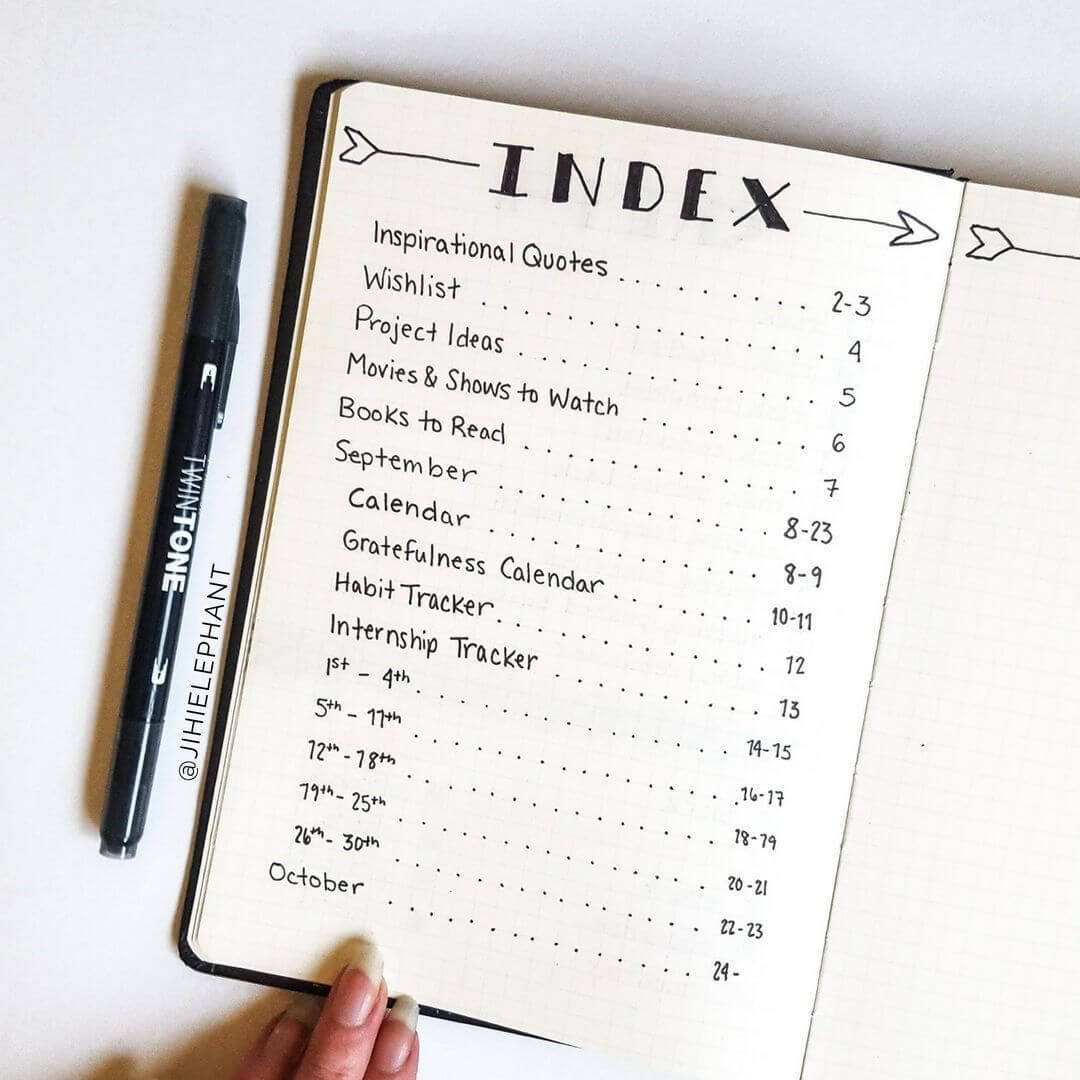 INDEX
Inspirational Quotes . . . . . . . . . 2-3
Wishlist . . . . . . . . . . . . . . 4
Project Ideas . . . . . . . . . . . . 5
Movies & Shows to Watch . . . . . . . . 6
Books to Read . . . . . . . . . . . . 7
September . . . . . . . . . . . . 8-23
Calendar . . . . . . . . . . . . 8-9
Gratefulness Calendar . . . . . . . 10-11
Habit Tracker . . . . . . . . . . . . 12
Internship Tracker . . . . . . . . . 13
1st - 4th . . . . . . . . . . . . . 14-15
5th - 11th . . . . . . . . . . . . . 16-17
12th - 18th . . . . . . . . . . . . 18-19
19th - 25th . . . . . . . . . . . . 20-21
26th - 30th . . . . . . . . . . . . 22-23
October . . . . . . . . . . . . . 24-
TWINTONE
@JIHIELEPHANT